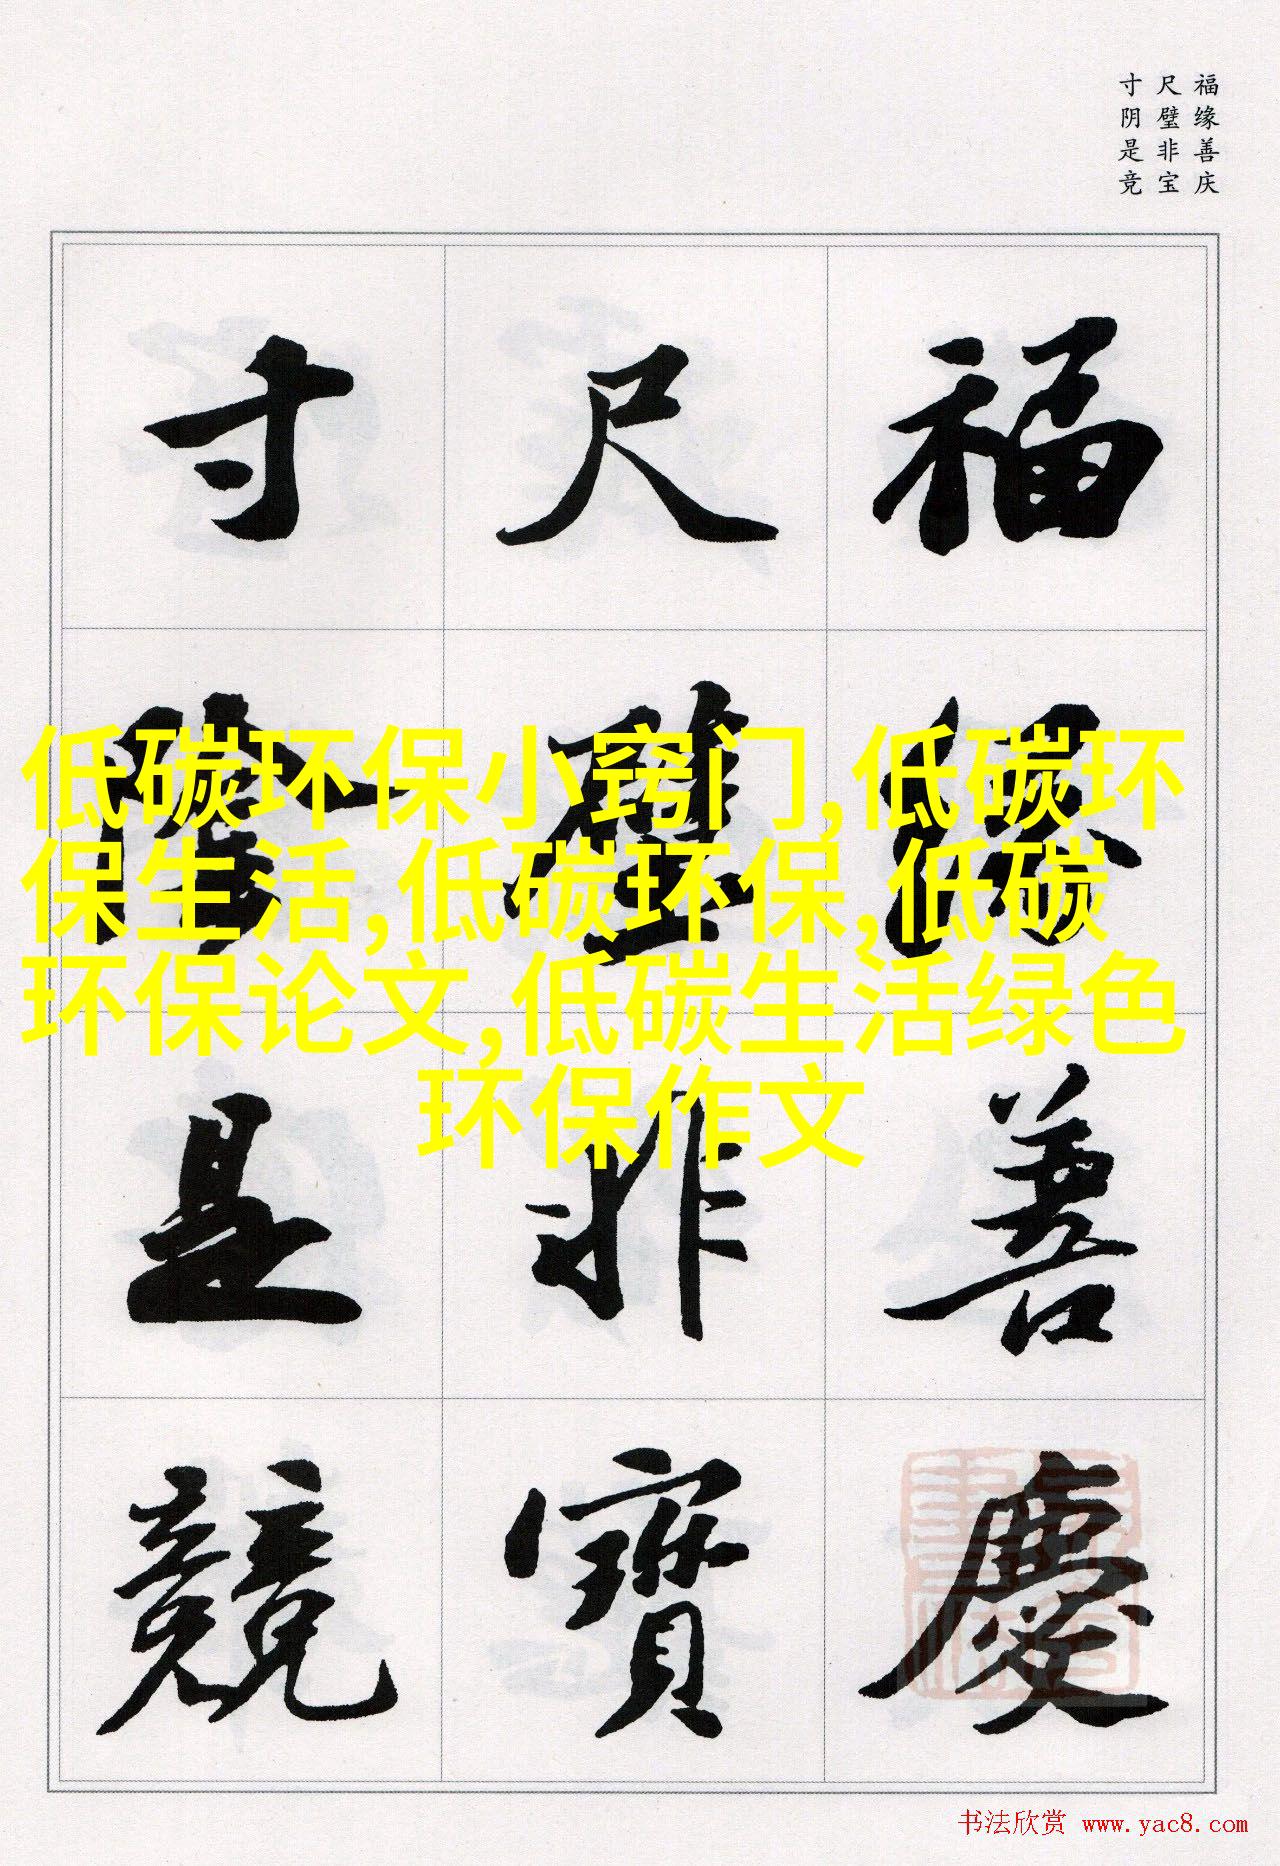 福缘善庆
尺璧非宝
寸阴是竞
福緣善慶
尺璧非寶
寸陰是競
低碳环保小窍门,低碳环
保生活,低碳环保,低碳
环保论文,低碳生活绿色
环保作文
书法欣赏 www.yac8.com